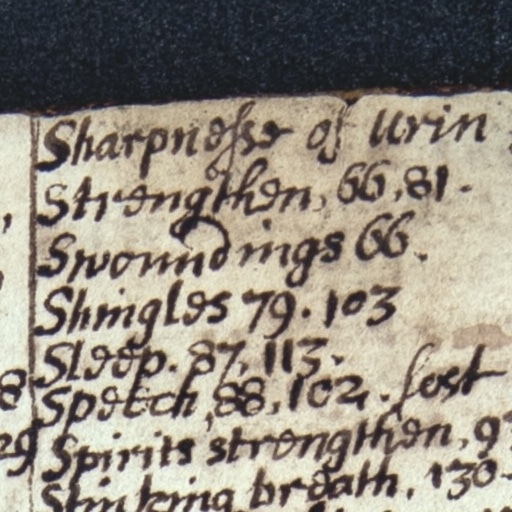 Sharpnesse of Urin
Strengthen, 66, 81.
Swoundings 66.
Shingles 79. 103
Sleep. 87, 113.
Speech, 88, 102. lost
Spirits strengthen, 9
Stinking breath, 130